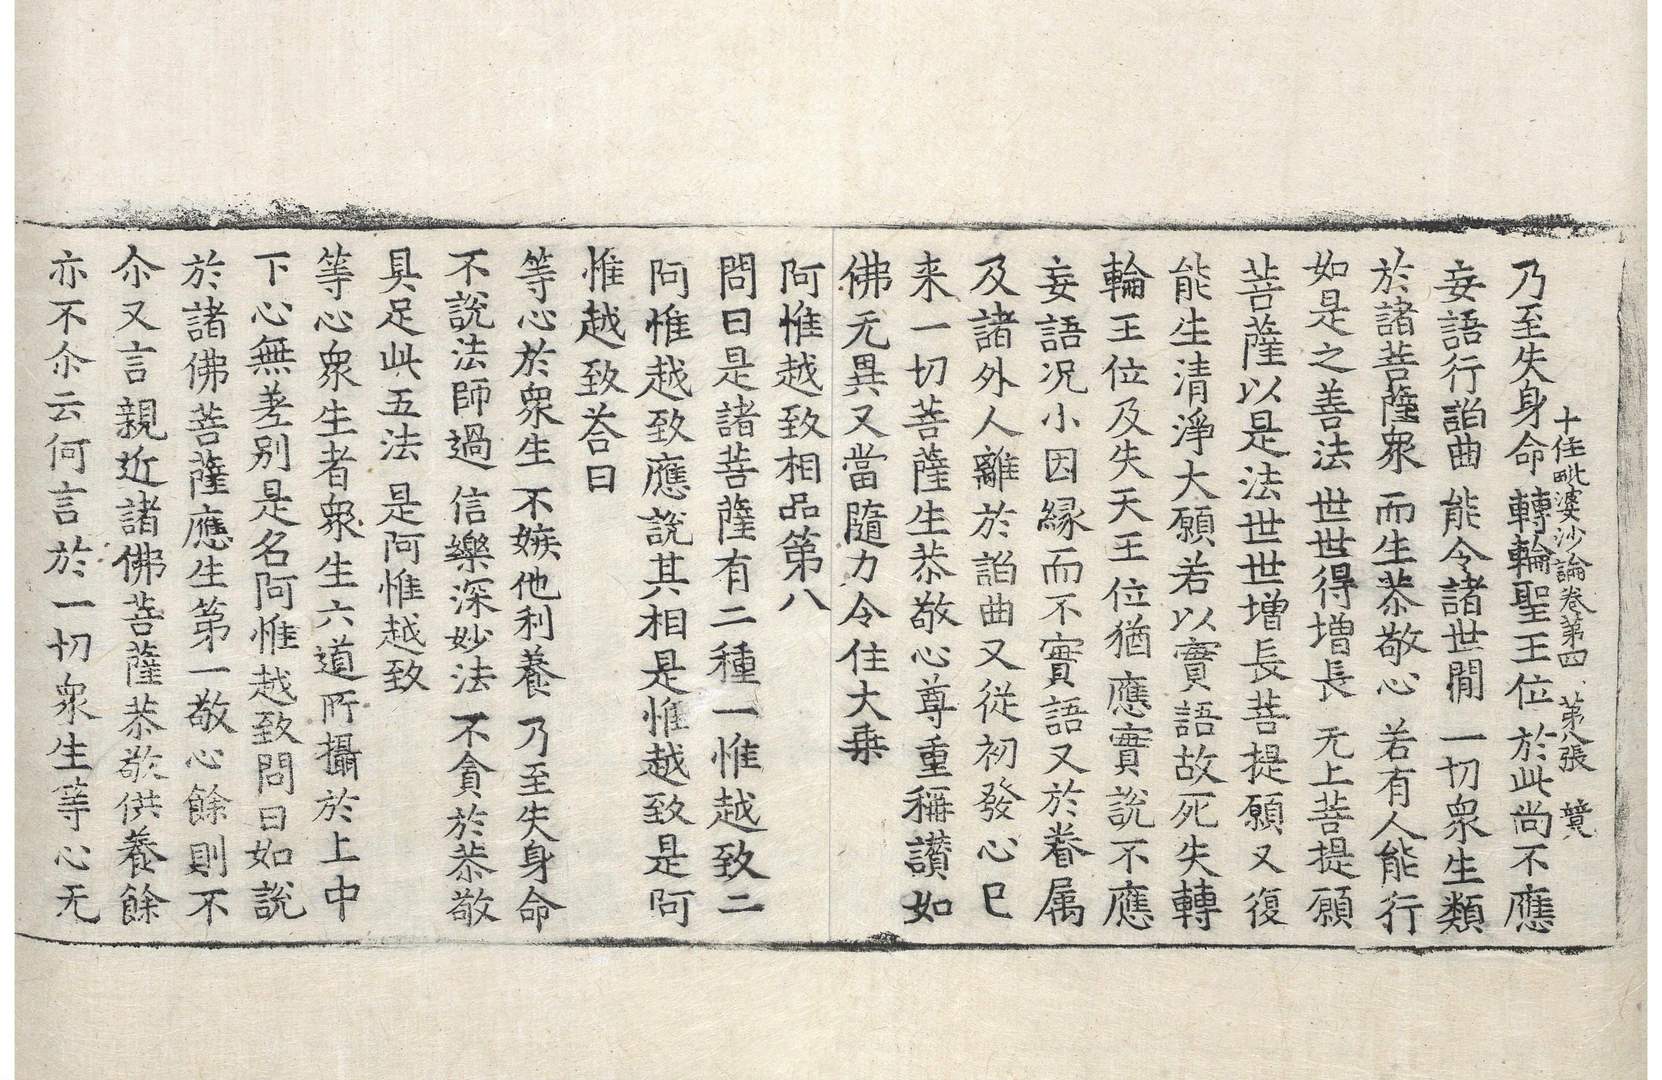 十住毗婆沙論卷第四 第八張 競
乃至失身命 轉輪聖王位 於此尚不應
妄語行諂曲 能令諸世間 一切衆生類
於諸菩薩衆 而生恭敬心 若有人能行
如是之善法 世世得增長 无上菩提願
菩薩以是法世世增長菩提願又復
能生清淨大願若以實語故死失轉
輪王位及失天王位猶應實說不應
妄語况小因緣而不實語又於眷属
及諸外人離於諂曲又從初發心已
来一切菩薩生恭敬心尊重稱讃如
佛无異又當隨力令住大乗
阿惟越致相品第八
問曰是諸菩薩有二種一惟越致二
阿惟越致應說其相是惟越致是阿
惟越致荅曰
等心於衆生 不嫉他利養 乃至失身命
不說法師過 信樂深妙法 不貪於恭敬
具足此五法 是阿惟越致
等心衆生者衆生六道所攝於上中
下心無差别是名阿惟越致問曰如說
於諸佛菩薩應生第一敬心餘則不
尒又言親近諸佛菩薩恭敬供養餘
亦不尒云何言於一切衆生等心无